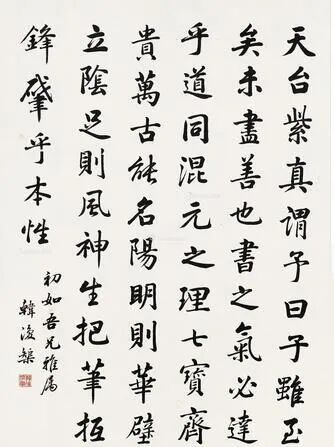 天台紫真谓予曰子雖至
矣未盡善也書之氣必達
乎道同混元之理七寶齊
貴萬古能名陽明則華壁
立陰足則風神生把筆抵
鋒肇乎本性
初如吾兄雅屬
韓復榘